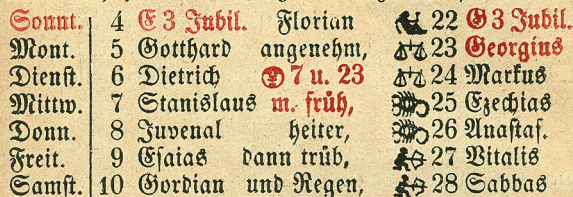 Sonnt. 4 E 3 Jubil. Florian 22 G 3 Jubil.
Mont. 5 Gotthard angenehm, 23 Georgius
Dienst. 6 Dietrich 7 u. 23 24 Markus
Mittw. 7 Stanislaus m. früh, 25 Ezechias
Donn. 8 Juvenal heiter, 26 Anastas.
Freit. 9 Esaias dann trüb, 27 Vitalis
Samst. 10 Gordian und Regen, 28 Sabbas